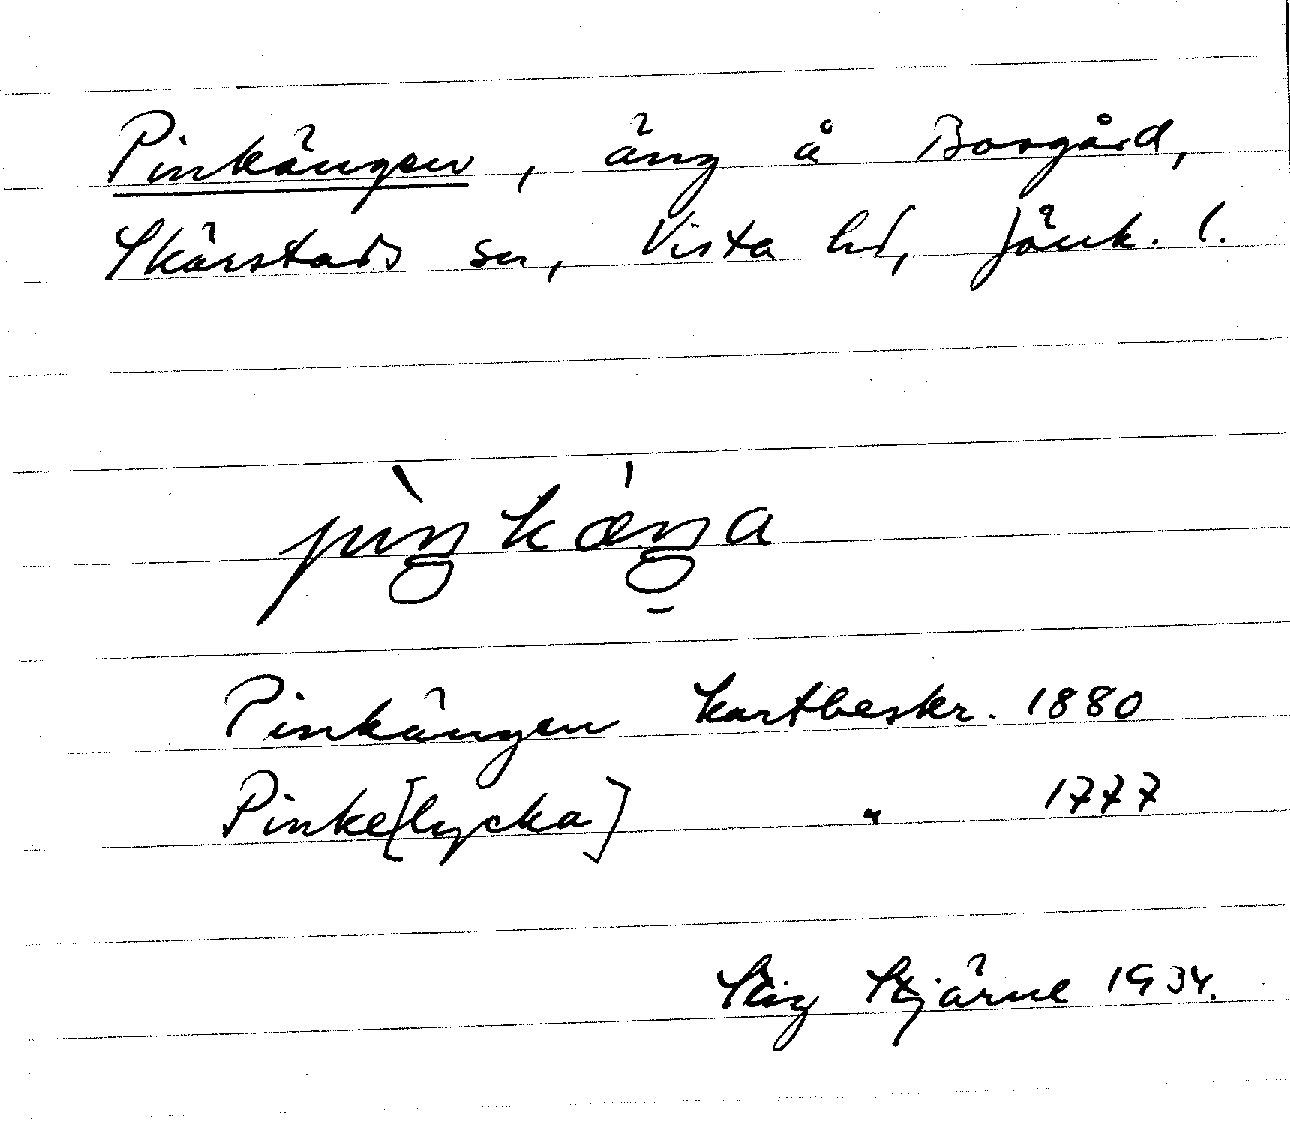 Pinkängen, äng å Bosgård,
Skärstads sn, Vista hd, Jönk. l.
pìŋkǽŋa
Pinkängen kartbeskr. 1880
Pinke[lycka] " 1777
Stig Stjärne 1934.